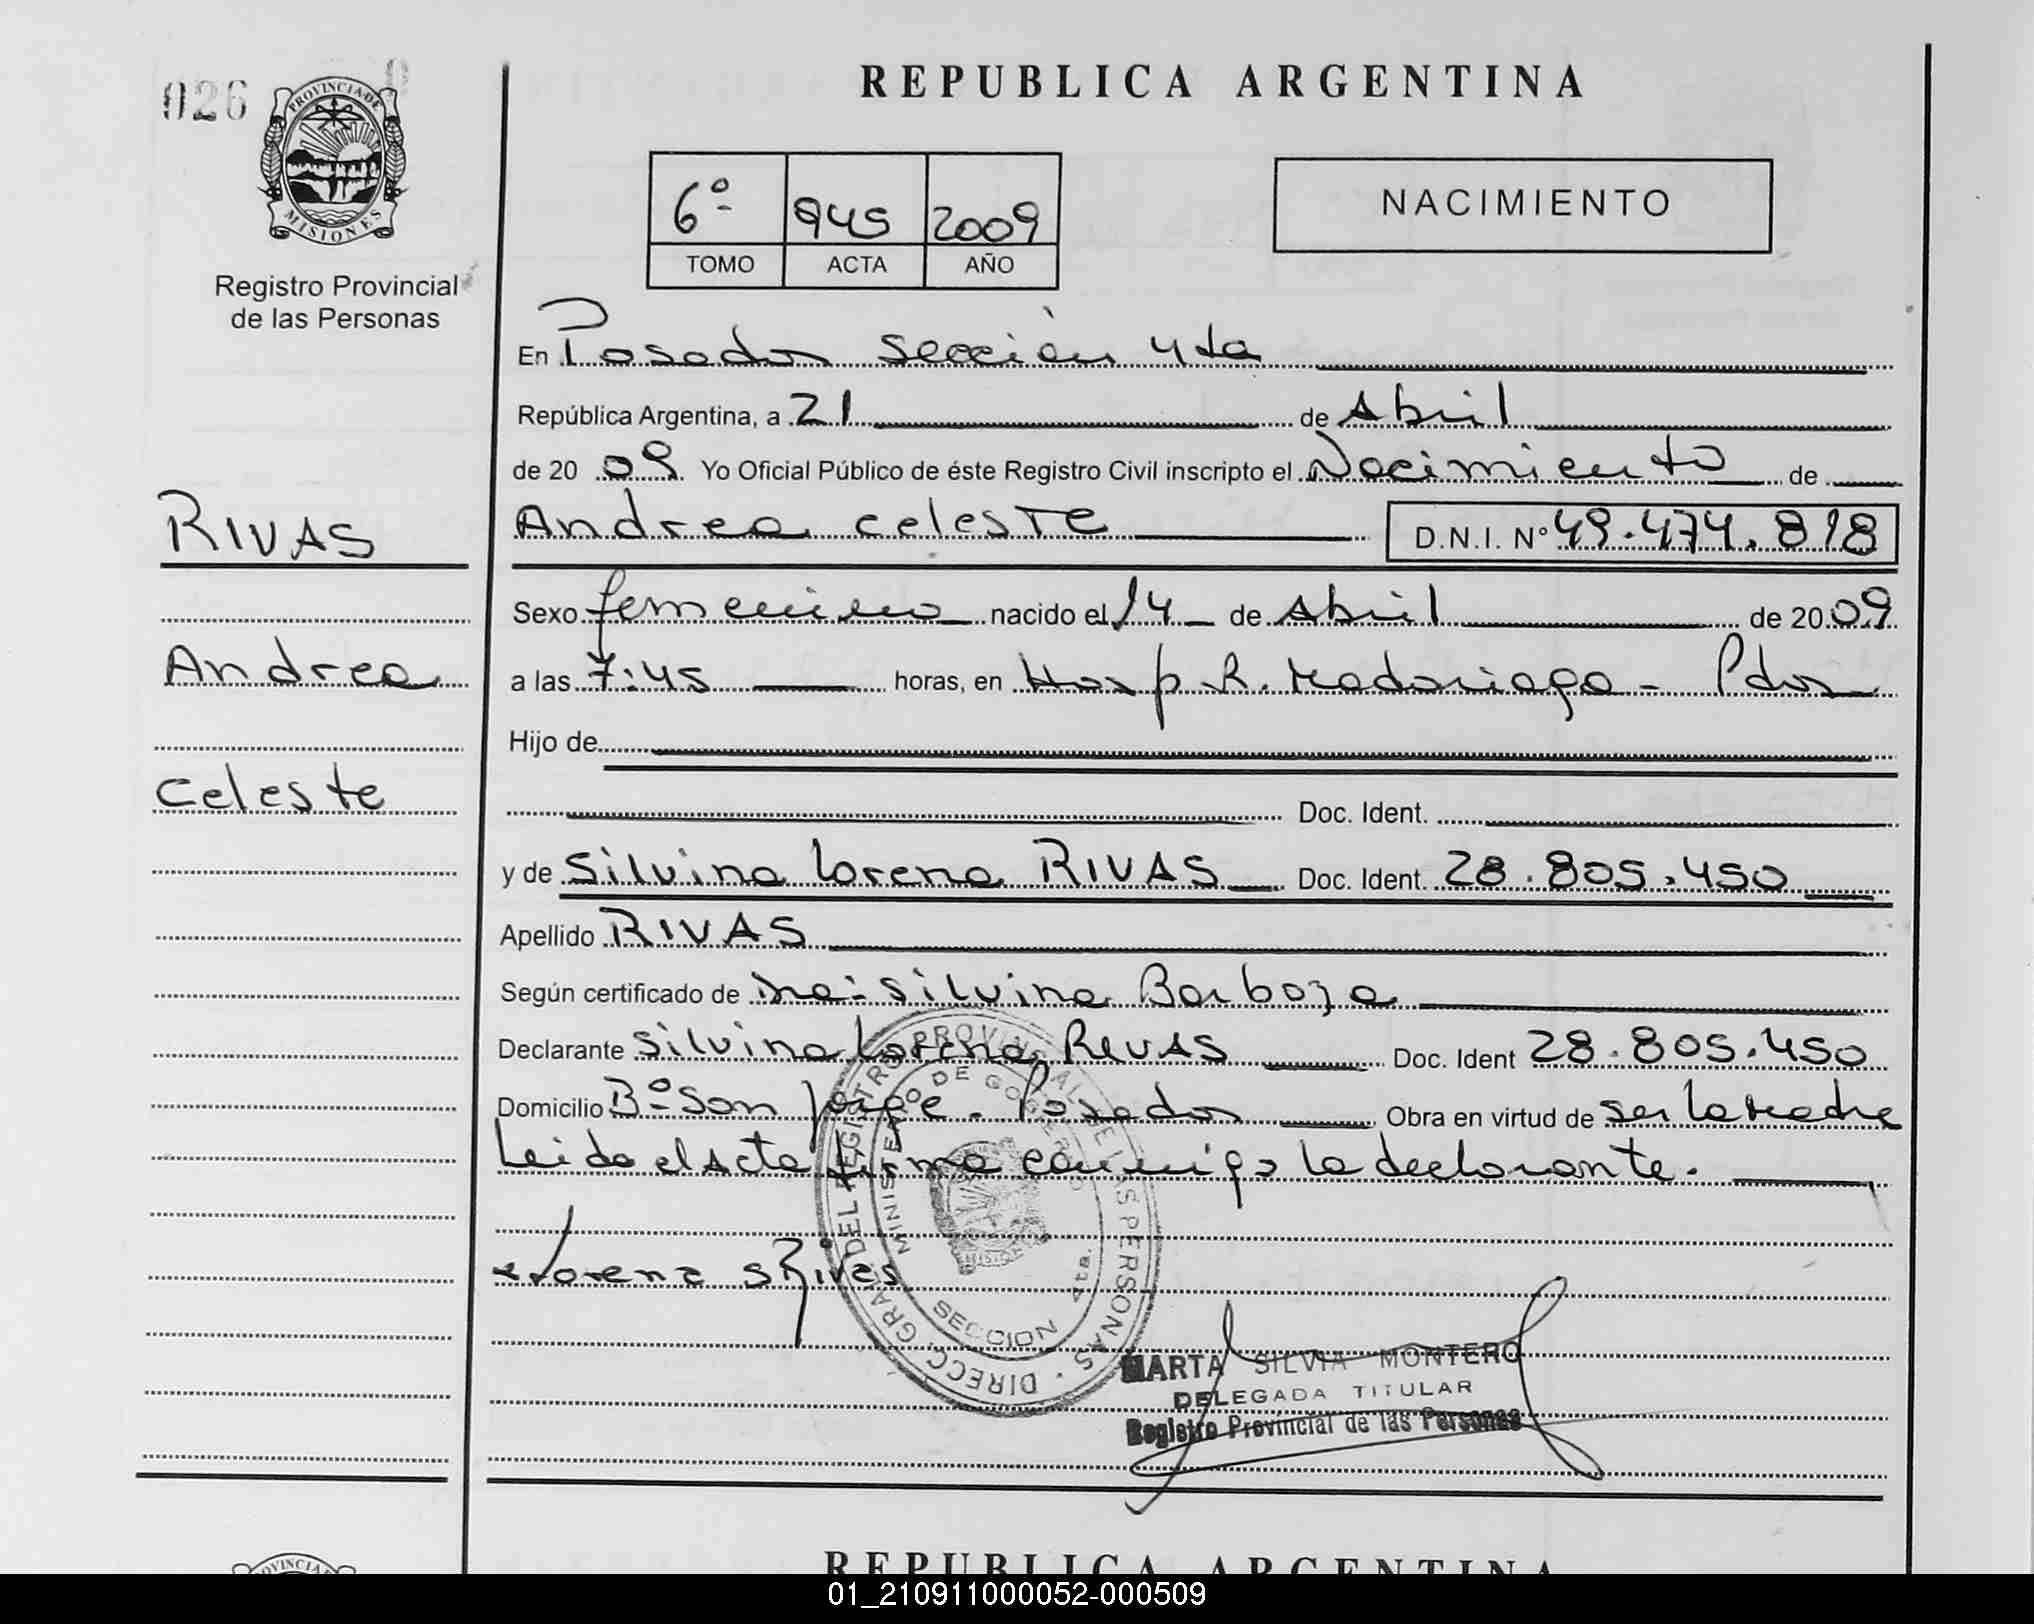 026
PROVINCIA DE
MISIONES
Registro Provincial
de las Personas
REPUBLICA ARGENTINA
6º 945 2009
TOMO ACTA AÑO
NACIMIENTO
En Posadas sección 4ta
República Argentina, a 21 de Abril
de 20 09 Yo Oficial Público de éste Registro Civil inscripto el Nacimiento de
RIVAS
Andrea Celeste D.N.I. Nº 49.474.818
Sexo femenino nacido el 14 de Abril de 20 09
Andrea
a las 7:45 horas, en Hosp R. Madariaga - Pdas
Hijo de
Celeste
Doc. Ident.
y de Silvina Lorena RIVAS Doc. Ident. 28.805.450
Apellido RIVAS
Según certificado de Dra: Silvina Barboza
Declarante Silvina Lorena RIVAS Doc. Ident 28.805.450
Domicilio Bº San Jorge - Posadas Obra en virtud de ser la Madre
Leida el Acta firma conmigo la declarante.
Lorena S Rivas
DIRECC. GRAL. DEL REGISTRO PROVINCIAL DE LAS PERSONAS
MINISTERIO DE GOBIERNO
SECCION 4ta.
MARTA SILVIA MONTERO
DELEGADA TITULAR
Registro Provincial de las Personas
REPUBLICA ARGENTINA
01_210911000052-000509